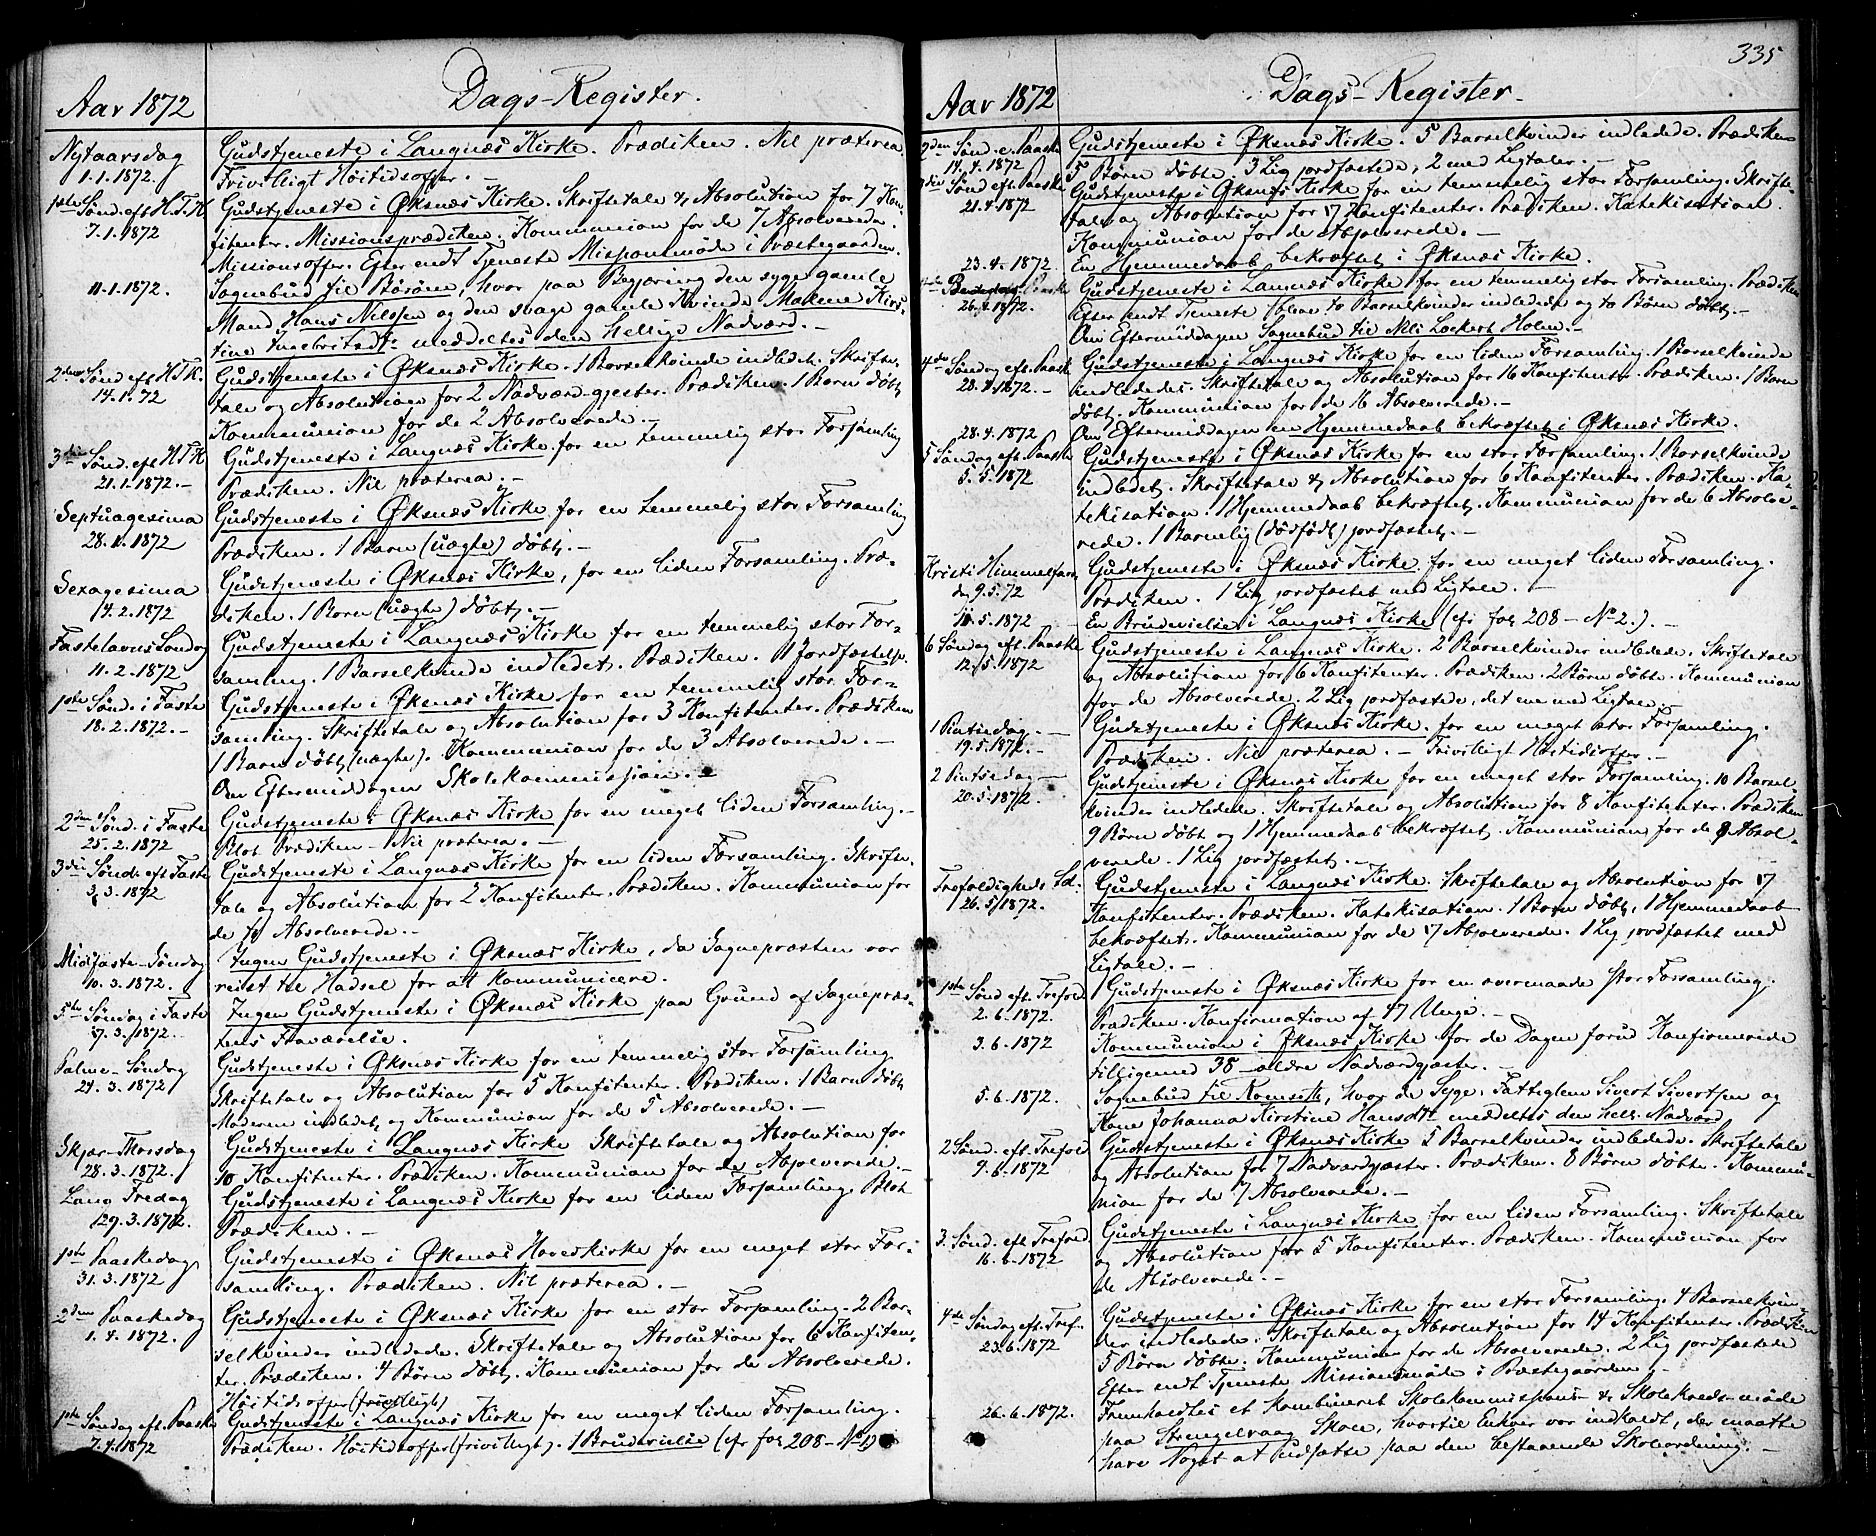 Aar 1872
Dags-Register.
Nytaarsdag
1.1.1872.
Gudstjeneste i Langnæs Kirke. Prædiken. Nil præterea.
Frivilligt Høitidsoffer.
1ste Sønd. eft H.T.K
7.1.1872
Gudstjeneste i Øksnæs Kirke. Skriftetale & Absolution for 7 Kon-
fitenter. Missionsprædiken. Kommunion for de 7 Absolverede.
Missionsoffer. Efter endt Tjeneste Missionsmøde i Præstegaarden.
11.1.1872.
Sognebud til Børøen, hvor paa Begjæring den syge gamle
Mand Hans Nilssen og den svage gamle Kvinde Maren Kirs-
tine Ingebrigtsdt. meddeltes den hellige Nadverd. –
2den Sønd eft H.T.K.
14.1.72
Gudstjeneste i Øksnæs Kirke. 1 Barselkvinde indledet. Skrifte-
tale og Absolution for 2 Nadverdgjester. Prædiken. 1 Barn døbt,
Kommunion for de 2 Absolverede. –
3die Sønd. eft H.T.K
21.1.1872. –
Gudstjeneste i Langnæs Kirke for en temmelig stor Forsamling
Prædiken. Nil præterea. –
Septuagesima
28.1.1872
Gudstjeneste i Øksnæs Kirke for en temmelig stor Forsamling
Prædiken. 1 Barn (uægte) døbt. –
Sexagesima
4.2.1872
Gudstjeneste i Øksnæs Kirke, for en liden Forsamling. Præ-
diken. 1 Barn (uægte) døbt. –
Fastelavns Søndag
11.2.1872
Gudstjeneste i Langnæs Kirke for en temmelig stor For-
samling. 1 Barselkvinde indledet. Prædiken. 1 Jordfæstelse.
1ste Sønd. i Faste
18.2.1872. –
Gudstjeneste i Øksnæs Kirke for en temmelig stor For-
samling. Skriftetale og Absolution for 3 Konfitenter. Prædiken
1 Barn døbt (uægte). Kommunion for de 3 Absolverede. –
Om Eftermiddagen Skolekommission. –
2den Sønd. i Faste
25.2.1872
Gudstjeneste i Øksnæs Kirke for en meget liden Forsamling. –
Blot Prædiken – Nil præterea. –
3die Sønd. eft Faste
3.3.1872
Gudstjeneste i Langnæs Kirke for en liden Forsamling. Skrifte-
tale og Absolution for 2 Konfitenter. Prædiken. Kommunion for
de Absolverede. –
Midfaste-Søndag
10.3.1872.
Ingen Gudstjeneste i Øksnæs Kirke, da Sognepræsten var
reist til Hadsel for at kommunicere.
5te Søndag i Faste
17.3.1872. –
Ingen Gudstjeneste i Øksnæs Kirke paa Grund af Sognepræs-
tens Fraværelse.
Palme-Søndag
24.3.1872
Gudstjeneste i Øksnæs Kirke for en temmelig stor Forsamling
Skriftetale og Absolution for 5 Konfitenter. Prædiken. 1 Barn døbt,
Moderen indledet, og Kommunion for de 5 Absolverede. –
Skjær-Thorsdag
28.3.1872.
Gudstjeneste i Langnæs Kirke Skriftetale og Absolution for
10 Konfitenter. Prædiken. Kommunion for de Absolverede. –
Lang Fredag
29.3.1872.
Gudstjeneste i Langnæs Kirke for en liden Forsamling. Blot
Prædiken. –
1ste Paaskedag
31.3.1872
Gudstjeneste i Øksnæs Hovedkirke for en meget stor For-
samling. Prædiken. Nil præterea. –
2den Paaskedag
1.4.1872.
Gudstjeneste i Øksnæs Kirke for en stor Forsamling. 2 Bar-
selkvinder indledede. Skriftetale og Absolution for 6 Konfiten-
ter. Prædiken. 4 Børn døbt. Kommunion for de Absolverede.
Høitidsoffer (frivilligt)
1ste Søndag eft. Paaske
7.4.1872
Gudstjeneste i Langnæs Kirke for en meget liden Forsamling.
Prædiken. Høitidsoffer (frivilligt). 1 Brudevielse (cfr fol 208 – No 1)
335
Aar 1872
Dags-Register.
2den Sønd. e. Paaske
14.4.1872
Gudstjeneste i Øksnæs Kirke. 5 Barselkvinder indledede. Prædiken
5 Børn døbte. 3 Lig jordfæstede, 2 med Ligtaler. –
Sønd eft. Paaske
21.4.1872
Gudstjeneste i Øksnæs Kirke for en temmelig stor Forsamling. Skrifte-
tale og Absolution for 17 Konfitenter. Prædiken. Katekisation
Kommunion for de Absolverede. –
23.4.1872.
En Hjemmedaab bekræftet i Øksnæs Kirke.
26.4.1872.
Gudstjeneste i Langnæs Kirke for en temmelig stor Forsamling. Prædiken
Efter endt Tjeneste bleve to Barselkvinder indledede og to Børn døbt. –
Om Eftermiddagen Sognebud til Nils Lockert Holm. –
4de Søndag eft. Paaske
28.4.1872. –
Gudstjeneste i Langnæs Kirke for en liden Forsamling. 1 Barselkvinde
indledes. Skriftetale og Absolution for 16 Konfitenter. Prædiken. 1 Barn
døbt. Kommunion for de 16 Absolverede. –
28.4.1872
Om Eftermiddagen en Hjemmedaab bekræftet i Øksnæs Kirke.
5 Søndag eft. Paaske
5.5.1872
Gudstjeneste i Øksnæs Kirke for en stor Forsamling. 1 Barselkvinde
indledet. Skriftetale & Absolution for 6 Konfitenter. Prædiken. Ka-
tekisation. 1 Hjemmedaab bekræftet. Kommunion for de 6 Absolve-
rede. 1 Barnelig (dødfødt) jordfæstet. –
Kristi Himmelfart
d. 9.5.72
Gudstjeneste i Øksnæs Kirke for en meget liden Forsamling.
Prædiken. 1 Lig jordfæstet med Ligtale. –
11.5.1872
En Brudevielse i Langnæs Kirke (cfr fol 208 – No 2.). –
6 Søndag eft. Paaske
12.5.1872
Gudstjeneste i Langnæs Kirke. 2 Barselkvinder indledede. Skriftetale
og Absolution for 6 Konfitenter. Prædiken. 2 Børn døbte. Kommunion
for de Absolverede. 2 Lig jordfæstede, det ene med Ligtale.
1 Pintsedag. –
19.5.1872. –
Gudstjeneste i Øksnæs Kirke for en meget stor Forsamling.
Prædiken. Nil præterea. – Frivilligt Høitidsoffer. –
2 Pintsedag –
20.5.1872.
Gudstjeneste i Øksnæs Kirke for en meget stor Forsamling. 10 Barsel-
kvinder indledede. Skriftetale og Absolution for 8 Konfitenter. Prædiken
9 Børn døbt og 1 Hjemmedaab bekræftet. Kommunion for de 8 Absol-
verede. 1 Lig jordfæstet. –
Trefoldigheds Sd.
26.5.1872.
Gudstjeneste i Langnæs Kirke. Skriftetale og Absolution for 17
Konfitenter. Prædiken. Katekisation. 1 Barn døbt, 1 Hjemmedaab
bekræftet. Kommunion for de 17 Absolverede. 1 Lig jordfæstet med
Ligtale. –
1ste Sønd eft. Trefold
2.6.1872.
Gudstjeneste i Øksnæs Kirke for en overmaade stor Forsamling.
Prædiken. Konfirmation af 47 Unge. –
3.6.1872
Kommunion i Øksnæs Kirke for de Dagen forud Konfirmerede
tilligemed 35 ældre Nadverdgjæster. –
5.6.1872.
Sognebud til Romsett, hvor de Syge: Fattiglem Sivert Sivertsen og
Kone Johanna Kirstine Hansdtr meddeltes den hell. Nadverd.
2 Sønd. eft. Trefold
9.6.1872
Gudstjeneste i Øksnæs Kirke 5 Barselkvinder indledede. Skriftetale
og Absolution for 7 Nadverdgjæster. Prædiken. 8 Børn døbte. Kommu-
nion for de 7 Absolverede. –
3. Sønd. eft. Trefold
16.6.1872
Gudstjeneste i Langnæs Kirke for en liden Forsamling. Skriftetale
og Absolution for 5 Konfitenter. Prædiken. Kommunion for
de Absolverede. –
4de Søndag eft. Tref.
23.6.1872
Gudstjeneste i Øksnæs Kirke for en stor Forsamling. 4 Barselkvin-
der indledede. Skriftetale og Absolution for 14 Konfitenter. Prædiken
5 Børn døbte. Kommunion for de Absolverede. 2 Lig jordfæstede
Efter endt Tjeneste Missionsmøde i Præstegaarden. –
26.6.1872.
Fremholdtes et kombineret Skolekommissions- & Skolekredsmøde
paa Strengelvaag Skole, hvortil Enhver var indkaldt, der maatte
have Noget at udsætte paa den bestaaende Skoleordning. –